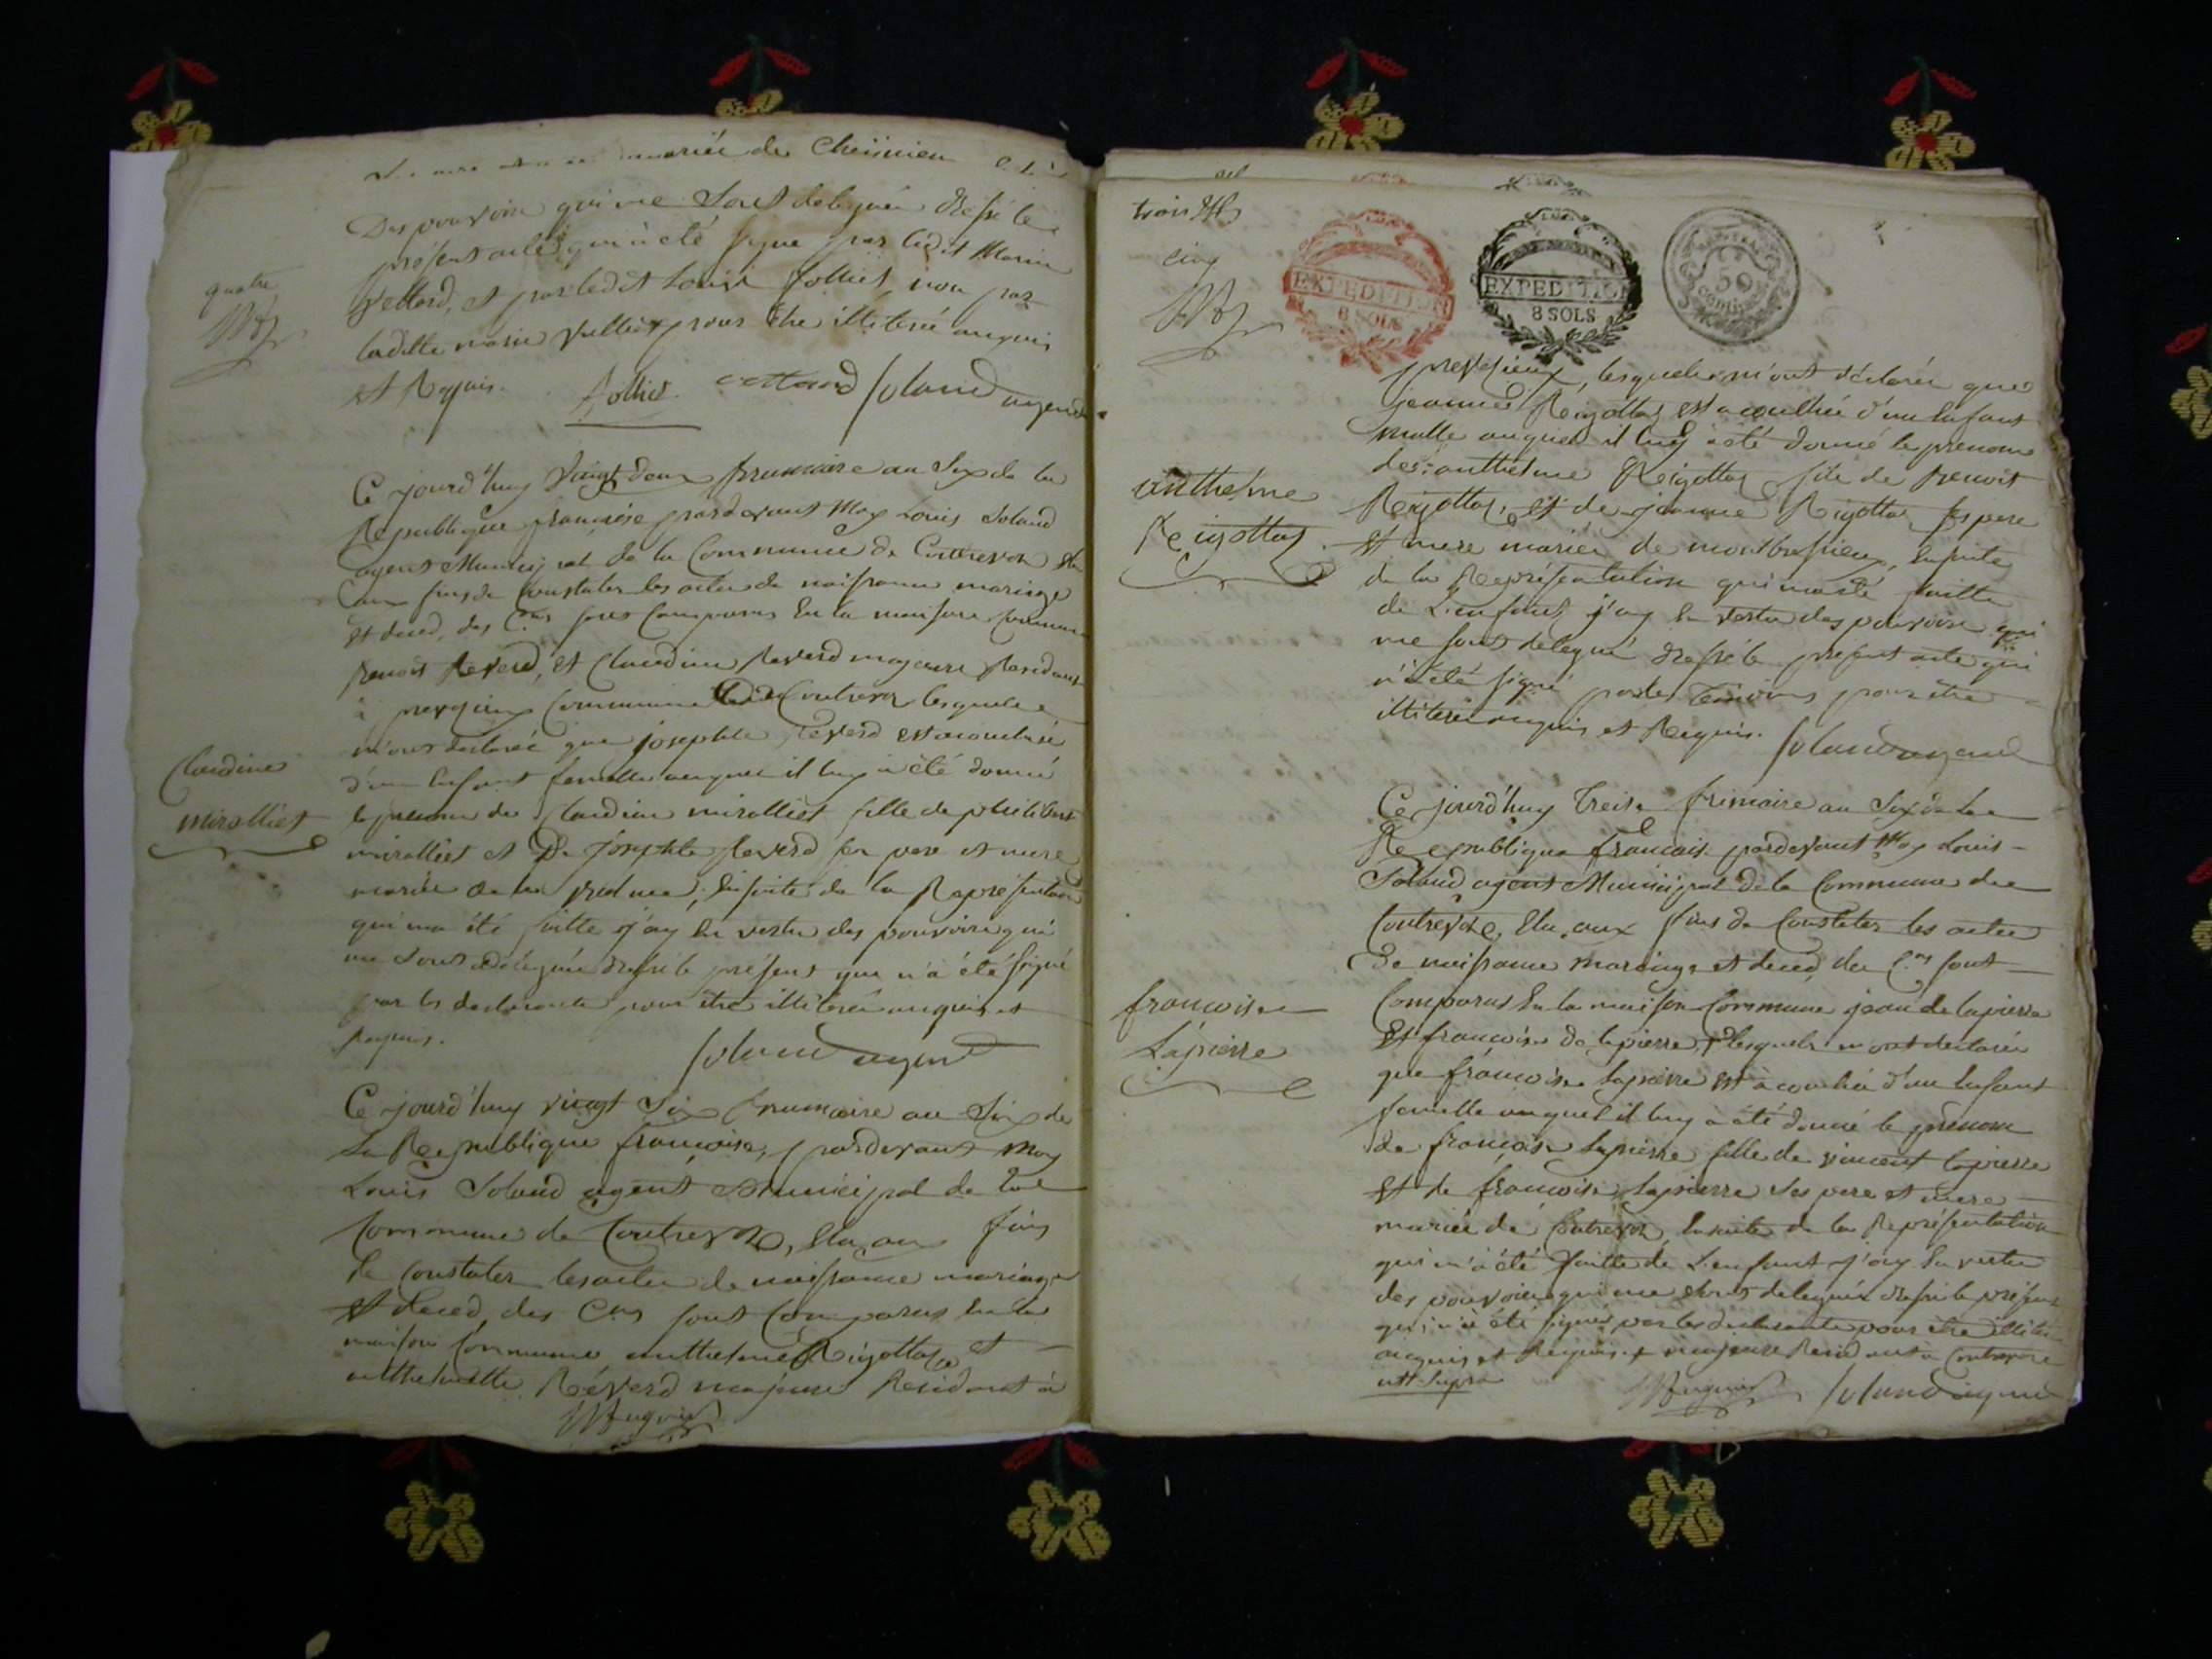 mariée de Cheinieu
quatre
Des pouvoirs qui me sont delegués dressé le
présent acte qui a été signé par ledit Marin
Vettard, et par ledit Louis Jolliet, non par
laditte marie Julliet pour être illiterée enquis
et Requis.
Jolliet vettard Soland agend
Claudine
mirolliet
Ce jourd'huy Vingt deux frumaire an Six de la
Republique françoise pardevant Moy Louis Soland
agent Municipal de la Commune de Contrevoz Elu
aux fins de Constater les actes de naissance mariage
et deced, des Cens sont Comparus En la maison Commune
Benoit Reverd, et Claudine Reverd majeure Residants
à preveieux Commune de Contrevoz lesquels
m'ont declaré que josephte Reverd est acouchée
d'un Enfant femelle auquel il luy a été donné
le prenom de Claudine mirolliet fille de philibert
mirolliet et De Josephte Reverd ses pere et mere
mariés de la
Ensuite de la Représentation
qui ma été faitte j'ay En vertu des pouvoirs qui
me sont delegués dressé le présent que n'a été signé
par les declarants pour être illiterés enquis et
Requis.
Soland agend
Ce jourd'huy vingt Six frumaire an Six de
La Republique françoise, pardevant Moy
Louis Soland agent Municipal de La
Commune de Contrevoz, Elu, aux fins
de Constater les actes de naissance mariage
et deced, des Cens sont Comparus En la
maison Commune anthelme Reigottaz et
anthelmette Réverd majeure Residants à
trois
cinq
EXPEDITION
8 SOLS
EXPEDITION
8 SOLS
50
centimes
anthelme
Reigottaz
preveieux, lesquels m'ont déclaré que
jeanne Reigottaz est acouchée d'un Enfant
malle auquel il luy a été donné le prenom
de anthelme Reigottaz fils de Benoit
Reigottaz, et de jeanne Rigottaz ses pere
et mere mariés de montbressieux, Ensuite
de la Représentation qui ma été faitte
de L'enfant, j'ay En vertu des pouvoirs qui
me sont delegué dressé le présent acte qui
n'a été signé par les Temoins pour être
illiterés enquis et Requis.
Soland agend
françoise
Lapierre
Ce jourd'huy Treize frimaire an Six de La
Republique française pardevant Moy Louis
Soland agent Municipal de la Commune de
Contrevoz, Elu, aux fins de Constater les actes
de naissance mariage et deced, des Cens sont
Comparus En la maison Commune jean de lapierre
Et françoise de lapierre, lesquels m'ont declaré
que françoise Lapierre est acouchée d'un Enfant
femelle auquel il luy a été donné le prenom
de françoise Lapierre fille de vincent lapierre
et de françoise Lapierre ses pere et mere
mariés de Contrevoz, Ensuite de la Représentation
qui m'a été faitte de L'enfant j'ay En vertu
des pouvoirs qui me sont delegués dressé le présent
qui n'a été signé par les declarants pour être illiterés
enquis et Requis. majeure Residants à Contrevoz
utt Supra
Soland agend